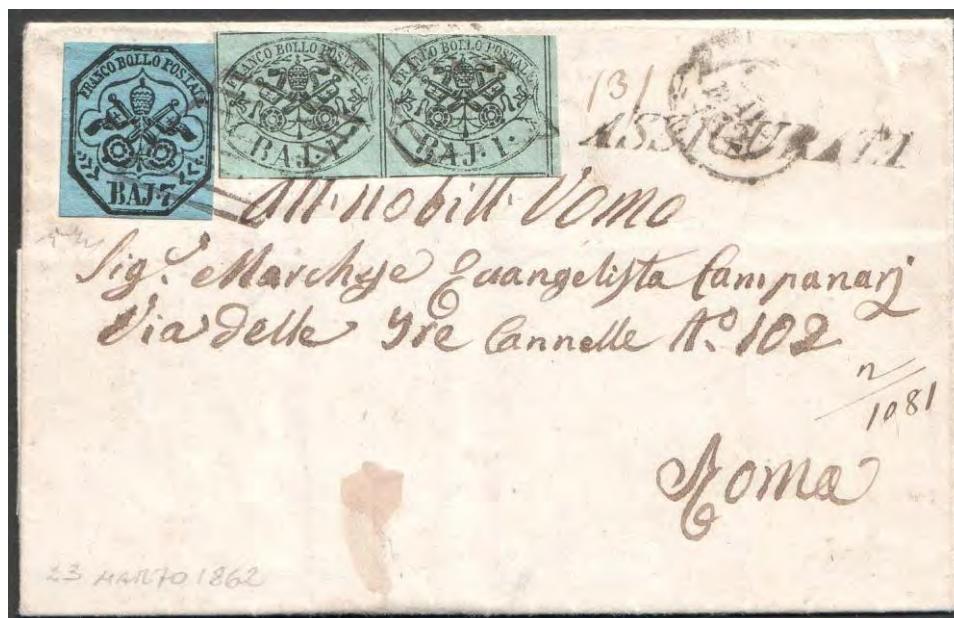 FRANCO BOLLO POSTALE
BAJ·7
FRANCO BOLLO POSTALE
BAJ·1·
FRANCO BOLLO POSTALE
BAJ·1·
131
ASSICURATA
All' nobill' Vomo
Sig.r Marchese Evangelista Campanarj
Via delle Tre Cannelle N.o 102
n/1081
Roma
23 MARZO 1862